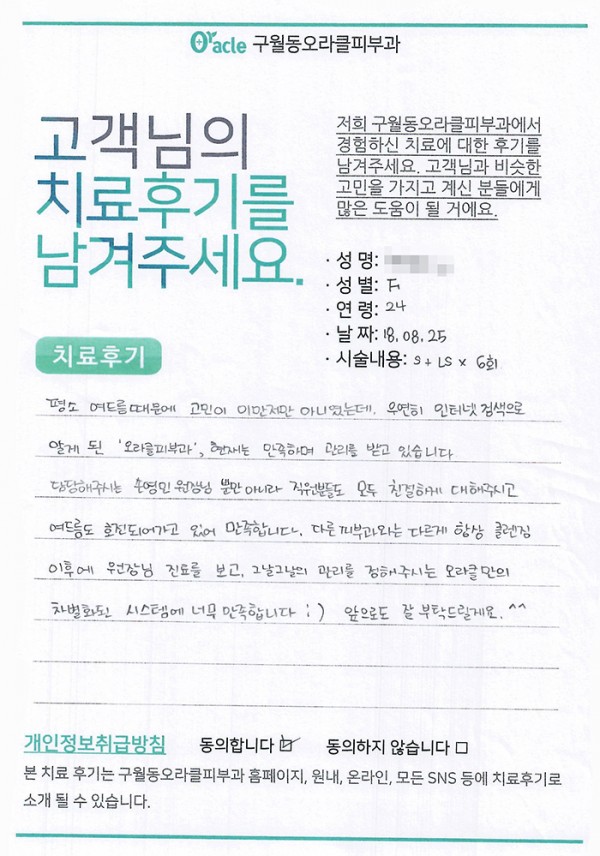 Oracle 구월동오라클피부과
고객님의
치료후기를
남겨주세요.
저희 구월동오라클피부과에서
경험하신 치료에 대한 후기를
남겨주세요. 고객님과 비슷한
고민을 가지고 계신 분들에게
많은 도움이 될 거에요.
· 성 명:
· 성 별: F
· 연 령: 24
· 날 짜: 18. 08. 25
· 시술내용: S + LS × 6회
치료후기
평소 여드름때문에 고민이 이만저만 아니였는데, 우연히 인터넷 검색으로
알게 된 '오라클피부과', 현재는 만족하며 관리를 받고 있습니다
담당해주시는 손영민 원장님 뿐만 아니라 직원분들도 모두 친절하게 대해주시고
여드름도 호전되어가고 있어 만족합니다. 다른 피부과와는 다르게 항상 클렌징
이후에 원장님 진료를 보고, 그날그날의 관리를 정해주시는 오라클만의
차별화된 시스템에 너무 만족합니다 :) 앞으로도 잘 부탁드릴게요. ^^
개인정보취급방침 동의합니다 ☑ 동의하지 않습니다 □
본 치료 후기는 구월동오라클피부과 홈페이지, 원내, 온라인, 모든 SNS 등에 치료후기로
소개 될 수 있습니다.